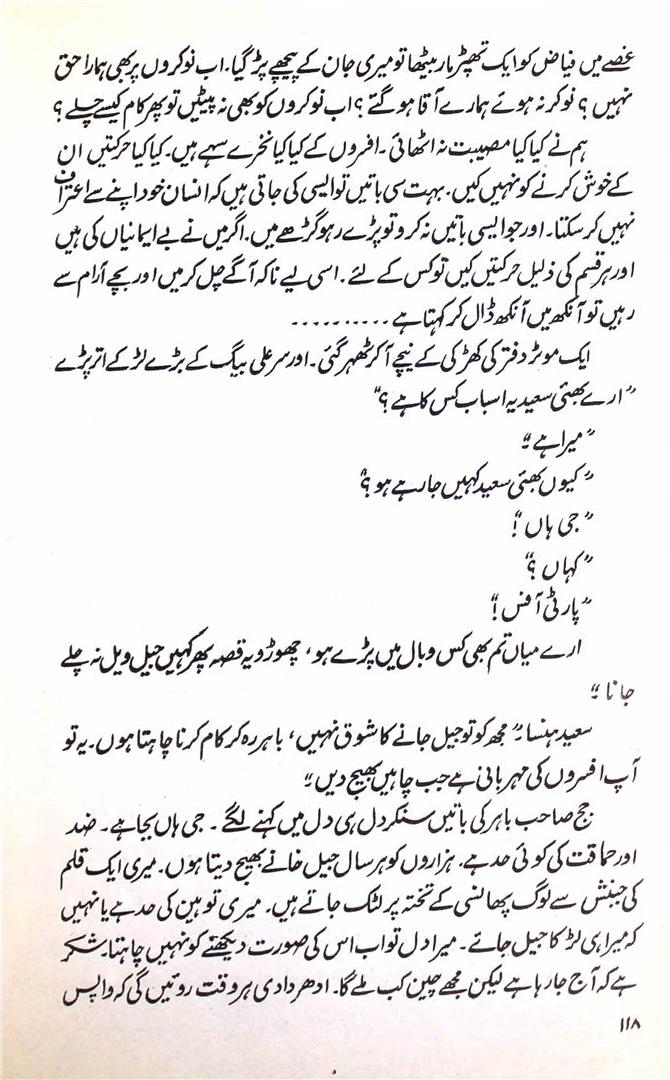 غصے میں فیاض کو ایک تھپڑ مار بیٹھا تو میری جان کے پیچھے پڑ گیا. اب نوکروں پر بھی ہمارا حق
نہیں؟ نوکر نہ ہوئے ہمارے آقا ہو گئے؟ اب نوکروں کو بھی نہ پیٹیں تو پھر کام کیسے چلے؟
ہم نے کیا کیا مصیبت نہ اٹھائی ۔ افسروں کے کیا کیا نخرے سہے ہیں. کیا کیا حرکتیں ان
کے خوش کرنے کو نہیں کیں. بہت سی باتیں تو ایسی کی جاتی ہیں کہ انسان خود اپنے سے اعتراف
نہیں کر سکتا۔ اور جو ایسی باتیں نہ کرو تو پڑے رہو گڑھے میں. اگر میں نے بے ایمانیاں کی ہیں
اور ہر قسم کی ذلیل حرکتیں کیں تو کس کے لئے. اسی لیے نا کہ آگے چل کر میں اور بچے آرام سے
رہیں تو آنکھ میں آنکھ ڈال کر کہتا ہے ..........
ایک موٹر دفتر کی کھڑکی کے نیچے آ کر ٹھہر گئی ۔ اور سر علی بیگ کے بڑے لڑکے اتر پڑے
"ارے بھئی سعید یہ اسباب کس کا ہے؟"
"میرا ہے"
"کیوں بھئی سعید کہیں جا رہے ہو؟"
"جی ہاں!"
"کہاں؟"
"پارٹی آفس!"
ارے میاں تم بھی کس وبال میں پڑے ہو، چھوڑو یہ قصہ پھر کہیں جیل ویل نہ چلے
جانا ۔"
سعید ہنسا ۔" مجھ کو تو جیل جانے کا شوق نہیں، باہر رہ کر کام کرنا چاہتا ہوں ۔ یہ تو
آپ افسروں کی مہربانی ہے جب چاہیں بھیج دیں ۔"
جج صاحب باہر کی باتیں سنکر دل ہی دل میں کہنے لگے ۔ جی ہاں بجا ہے ۔ ضد
اور حماقت کی کوئی حد ہے. ہزاروں کو ہر سال جیل خانے بھیج دیتا ہوں ۔ میری ایک قلم
کی جنبش سے لوگ پھانسی کے تختہ پر لٹک جاتے ہیں. میری توہین کی حد ہے یا نہیں
کہ میرا ہی لڑکا جیل جائے ۔ میرا دل تو اب اس کی صورت دیکھنے کو نہیں چاہتا. شکر
ہے کہ آج جا رہا ہے لیکن مجھے چین کب ملے گا. ادھر دادی ہر وقت روئیں گی کہ واپس
۱۱۸